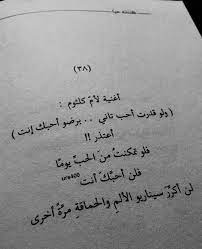 كلمتته حبا
(٣٨)
أغنية لأم كلثوم :
( ولو قدرت أحب تاني .. برضو أحبك إنت )
أعتذر !!
فلو تمكنتُ من الحبّ يومًا
فلن أحبّك أنت
uro400
لن أكرّر سيناريو الألم والحماقة مرّة أخرى